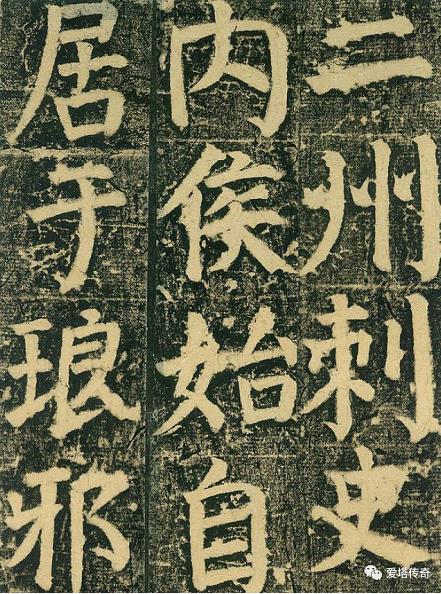 二州刺史
内侯始自
居于琅邪
爱塔传奇